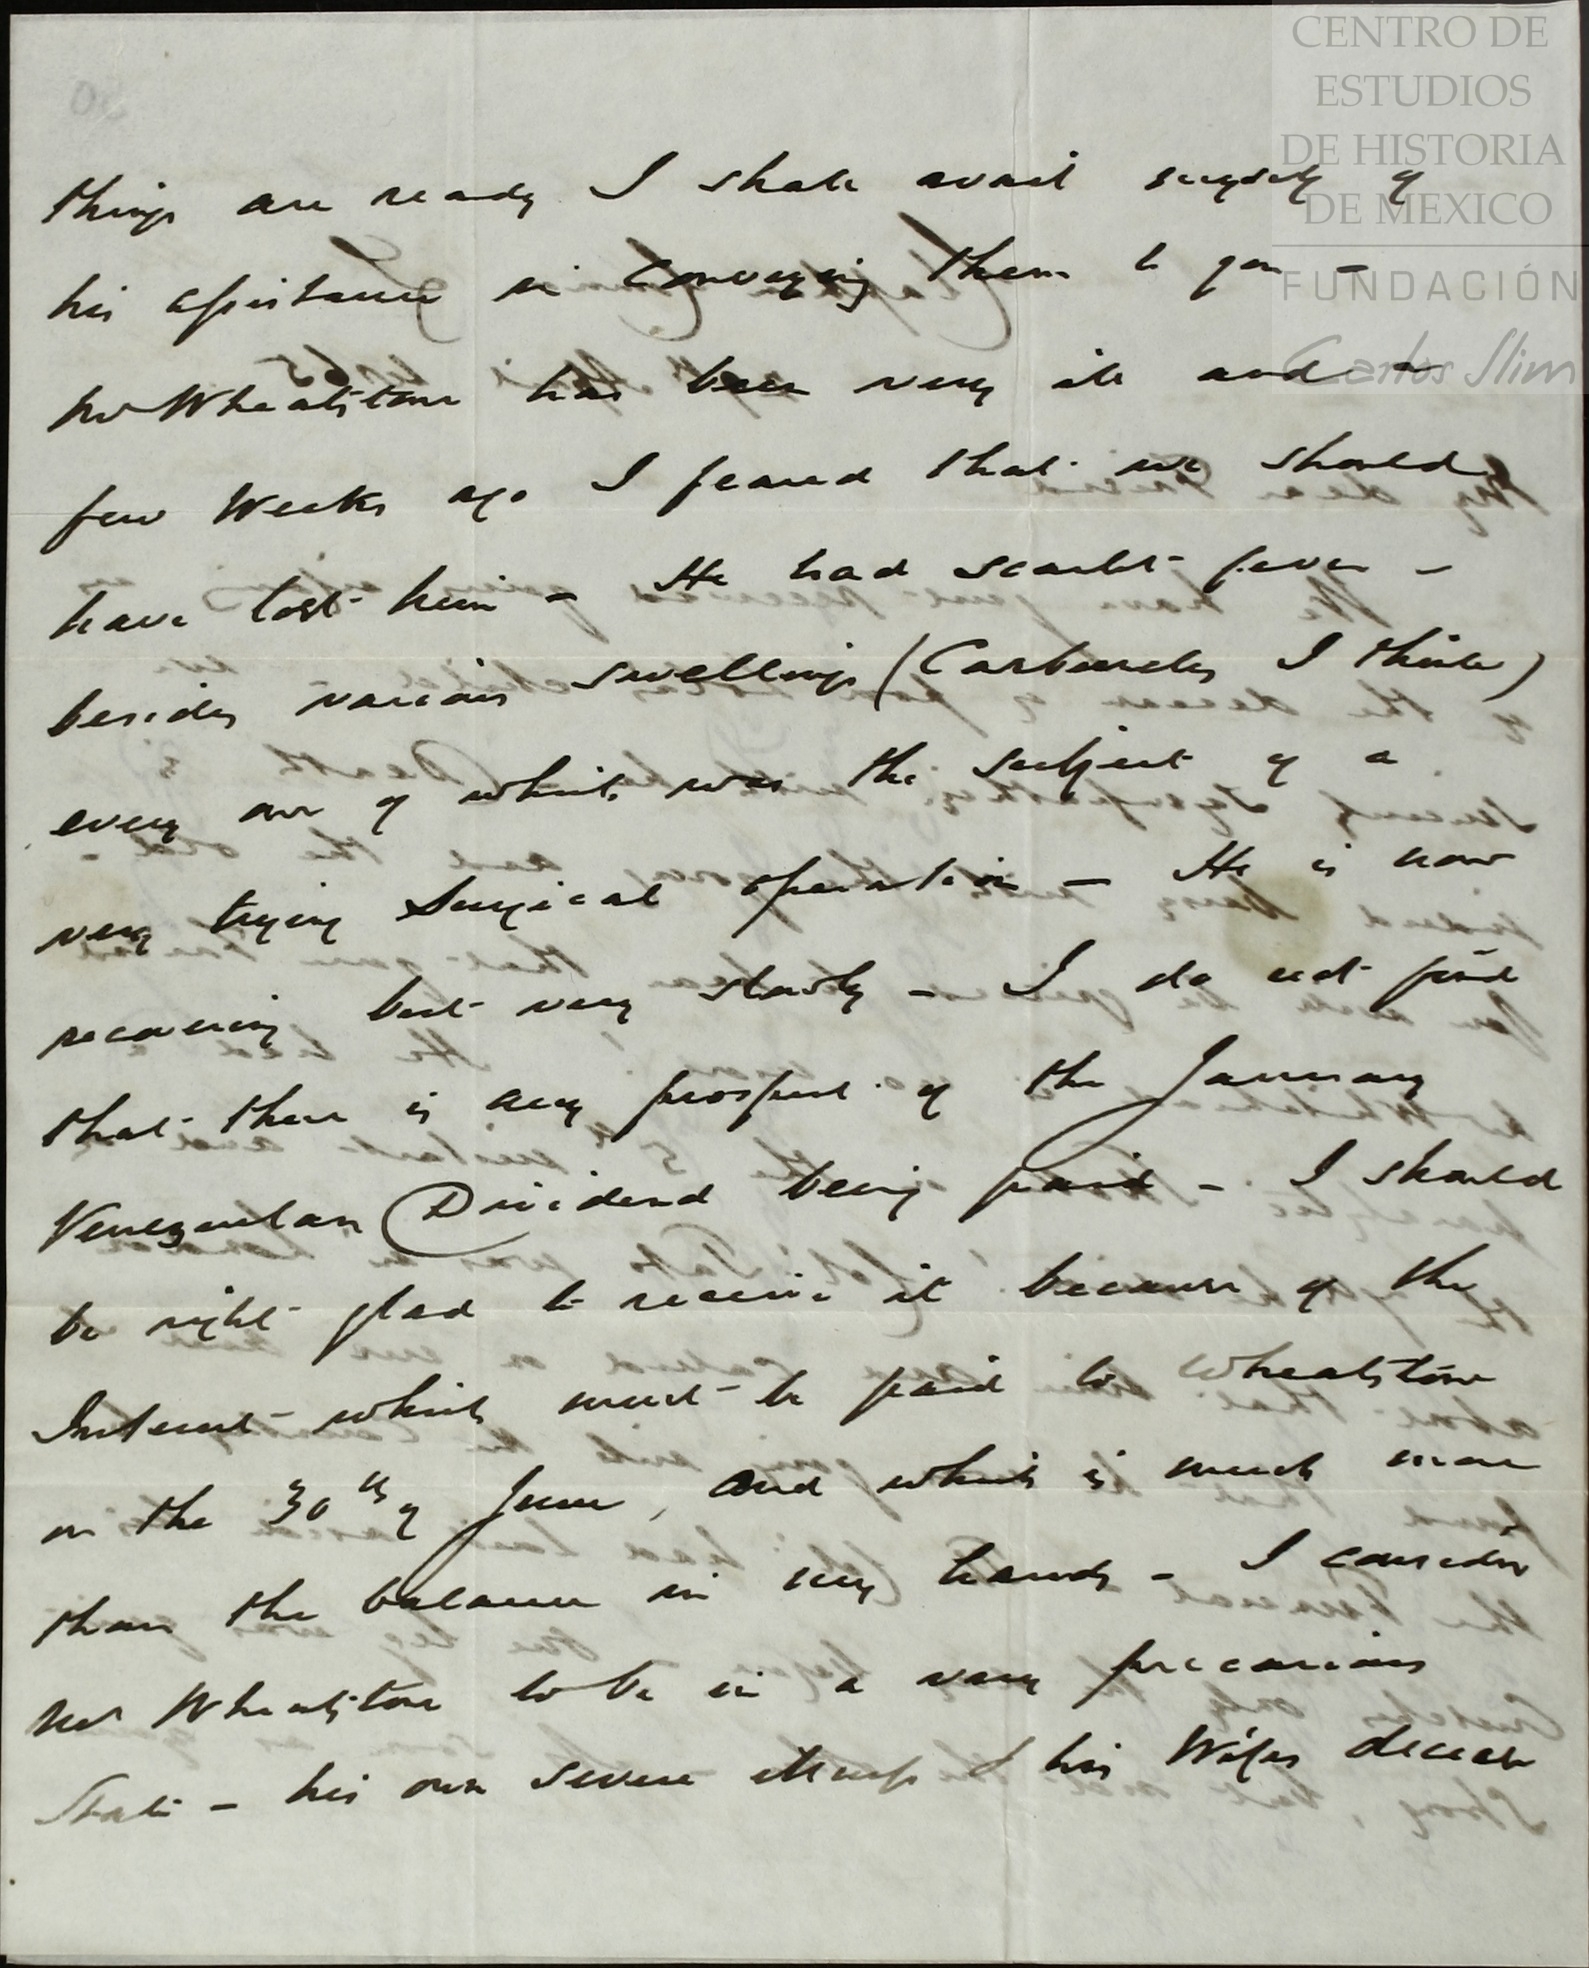 CENTRO DE
ESTUDIOS
DE HISTORIA
DE MEXICO
FUNDACIÓN
Carlos Slim
things are ready I shall avail myself of
his assistance in conveying them to you -
Mr Wheatstone has been very ill and a
few Weeks ago I feared that we should
have lost him - He had scarlet fever -
besides various swellings (Carbuncles I think)
every one of which was the subject of a
very trying Surgical operation - He is now
recovering but very slowly - I do not find
that there is any prospect of the January
Venezuelan Dividend being paid - I should
be right glad to receive it because of the
Interest which must be paid to Wheatstone
on the 30th of June, and which is much more
than the balance in my hands - I consider
Mr Wheatstone to be in a very precarious
State - his own severe illness & his Wifes decease